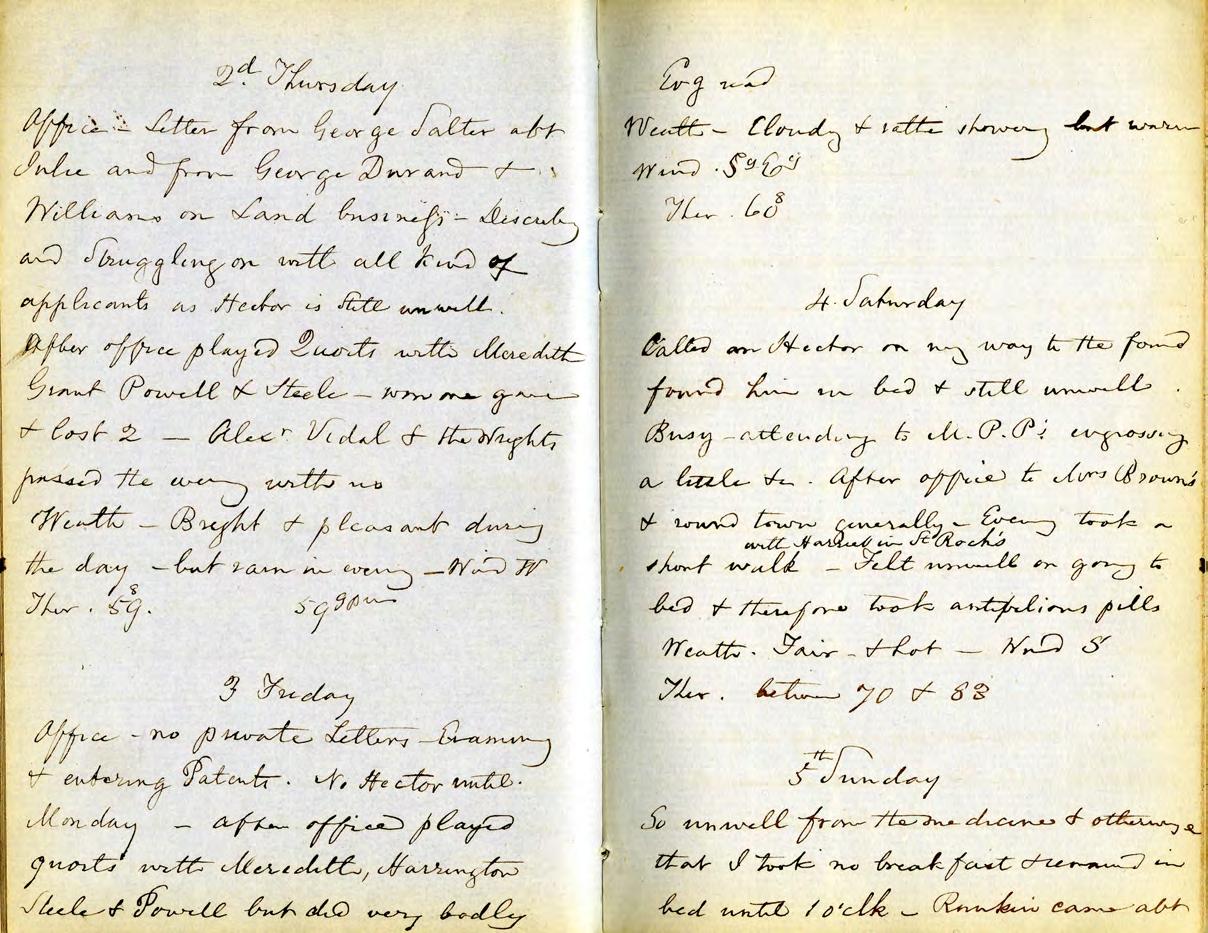 2d. Thursday
Office - Letter from George Salter abt
Julie and from George Durand &
Williams on Land business - Describing
and Struggling on with all kind of
applicants as Hector is still unwell.
After office played Quoits with Meredith
Grant Powell & Steele - won one game
& lost 2 — Alexr. Vidal & the Wrights
passed the eveng with us
Weath - Bright & pleasant during
the day - but rain in eveng - Wind W
Ther. 598. 599pm
3 Friday
Office - no private Letters - Examing
& entering Patents. No Hector until
Monday - after office played
quoits with Meredith, Harrington
Steele & Powell but did very badly
Evg read
Weath - Cloudy & rathr showery but warm
Wind.
Ther. 608
4. Saturday
Called on Hector on my way to the
found him in bed & still unwell.
Busy - attending to M.P.P's engrossing
a little &c. After office to Mrs Brown's
& round town generally - Eveng took a
with Harriet in St Roch's
short walk - Felt unwell on going to
bed & therefore took antibilious pills
Weath. Fair - & hot — Wind S
Ther. between 70 & 83
5th Sunday
So unwell from the medicine & otherwise
that I took no breakfast & remaind in
bed until 1 o'clk - Rankin came abt